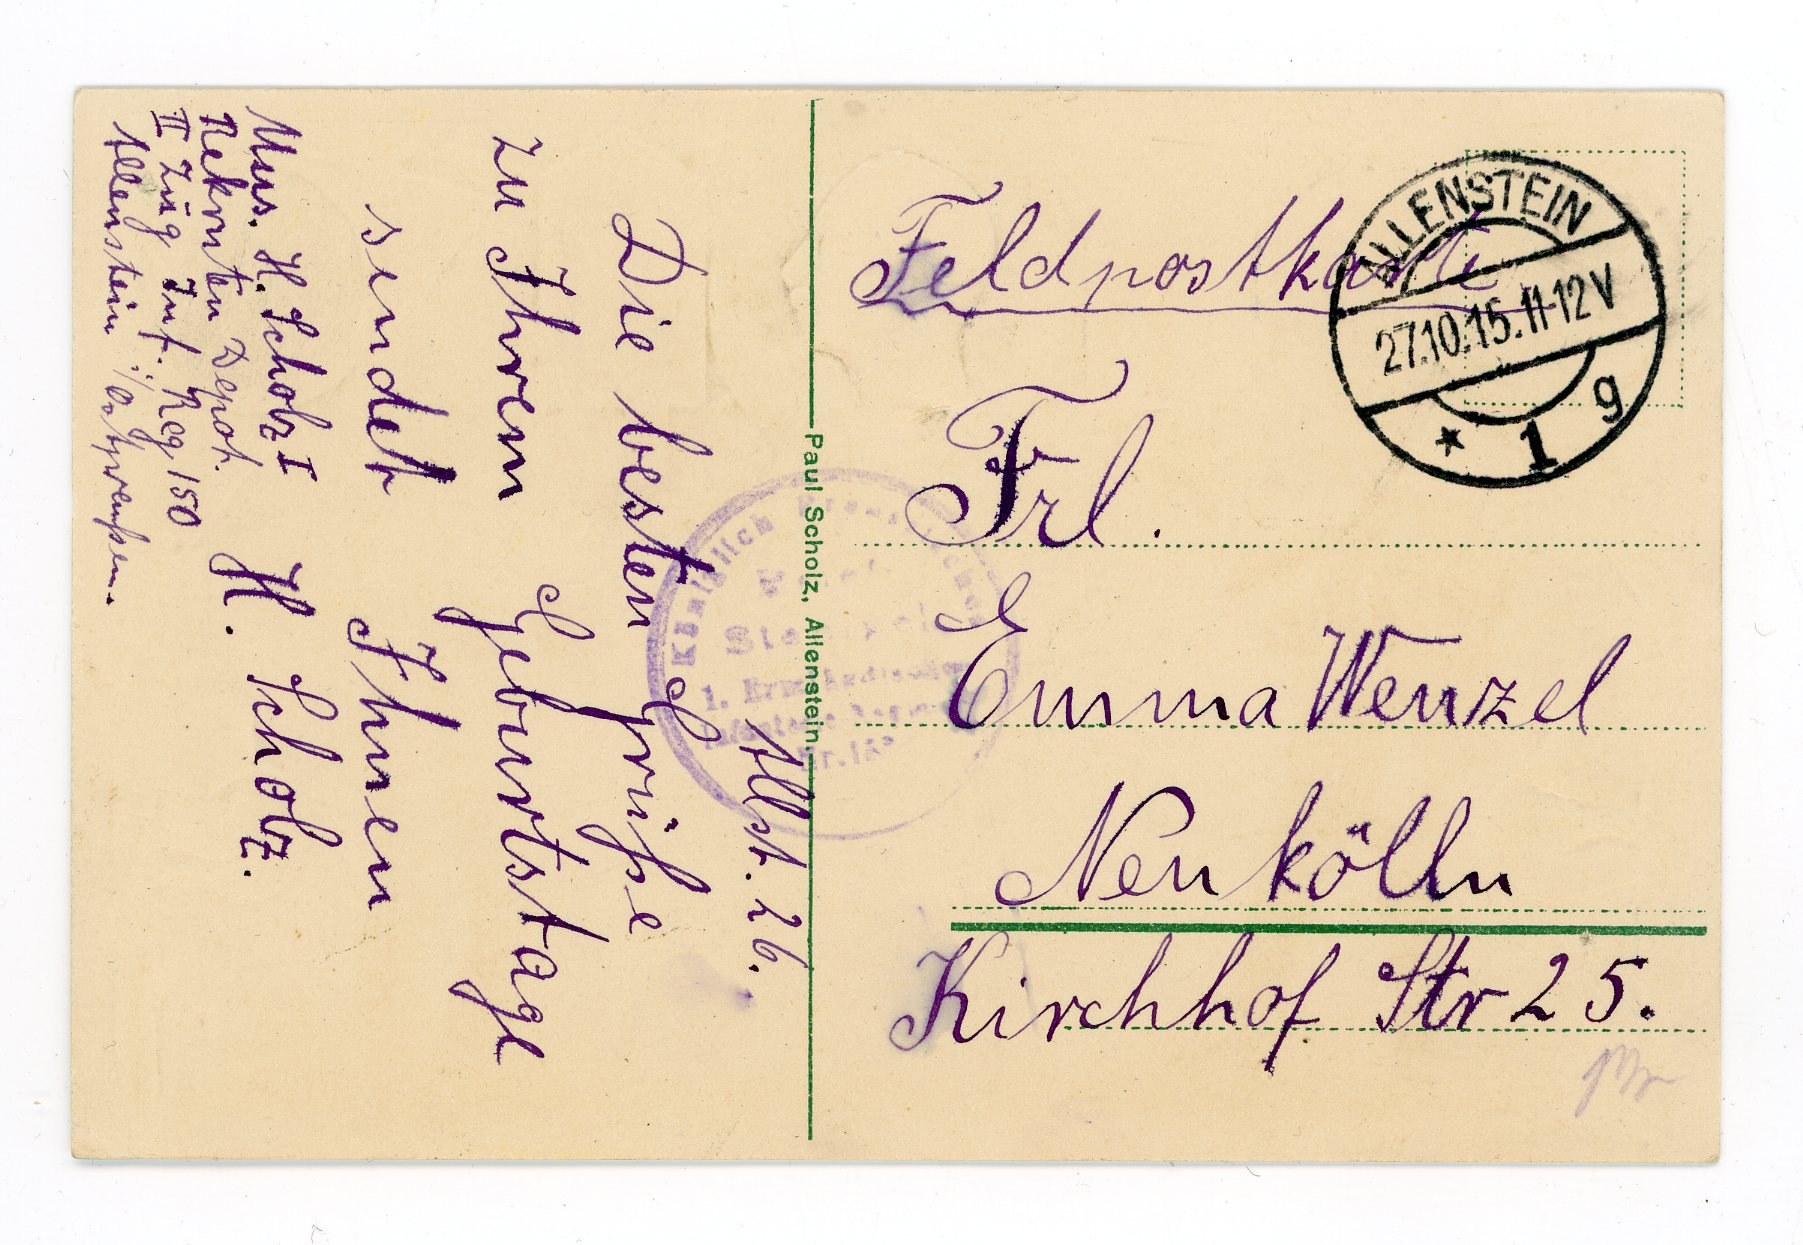 Feldpostkarte
Frl.
Emma Wenzel
Neukölln
Kirchhof Str 25.
ALLENSTEIN
27.10.15.11-12V
* 1 g
Paul Scholz, Allenstein.
Allst. 26.
Die besten Grüße
zu Ihrem Geburtstage
sendet Ihnen
H. Scholz.
Mus. H. Scholz I
Rekruten Depot.
II Zug Inf. Reg 150
Allenstein i/Ostpreußen.
Königlich
1. Ermländisches
Infanterie
Nr. 150